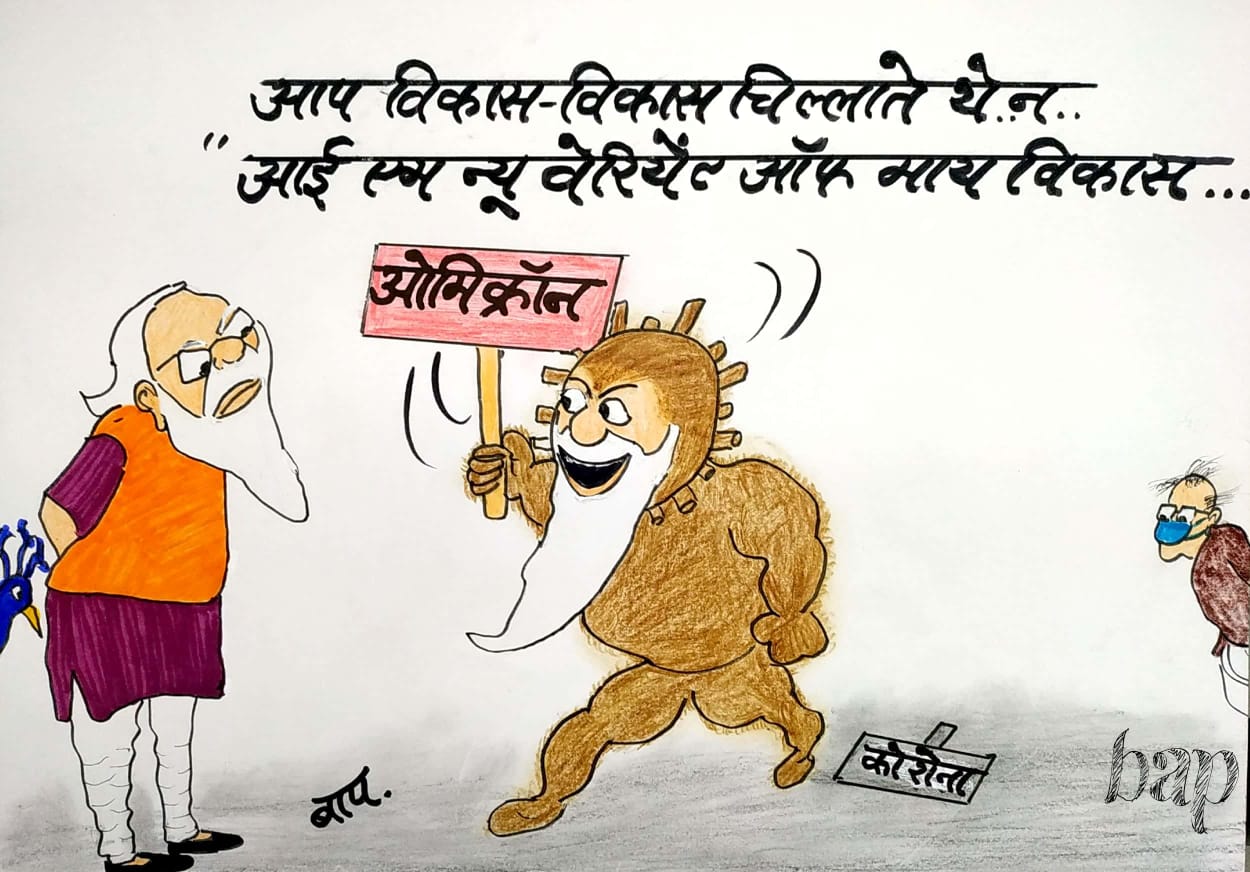 आप विकास-विकास चिल्लाते थे..न..
"आई एम न्यू वेरियेंट ऑफ माय विकास...
ओमिक्रॉन
कोरोना
बाप.
bap